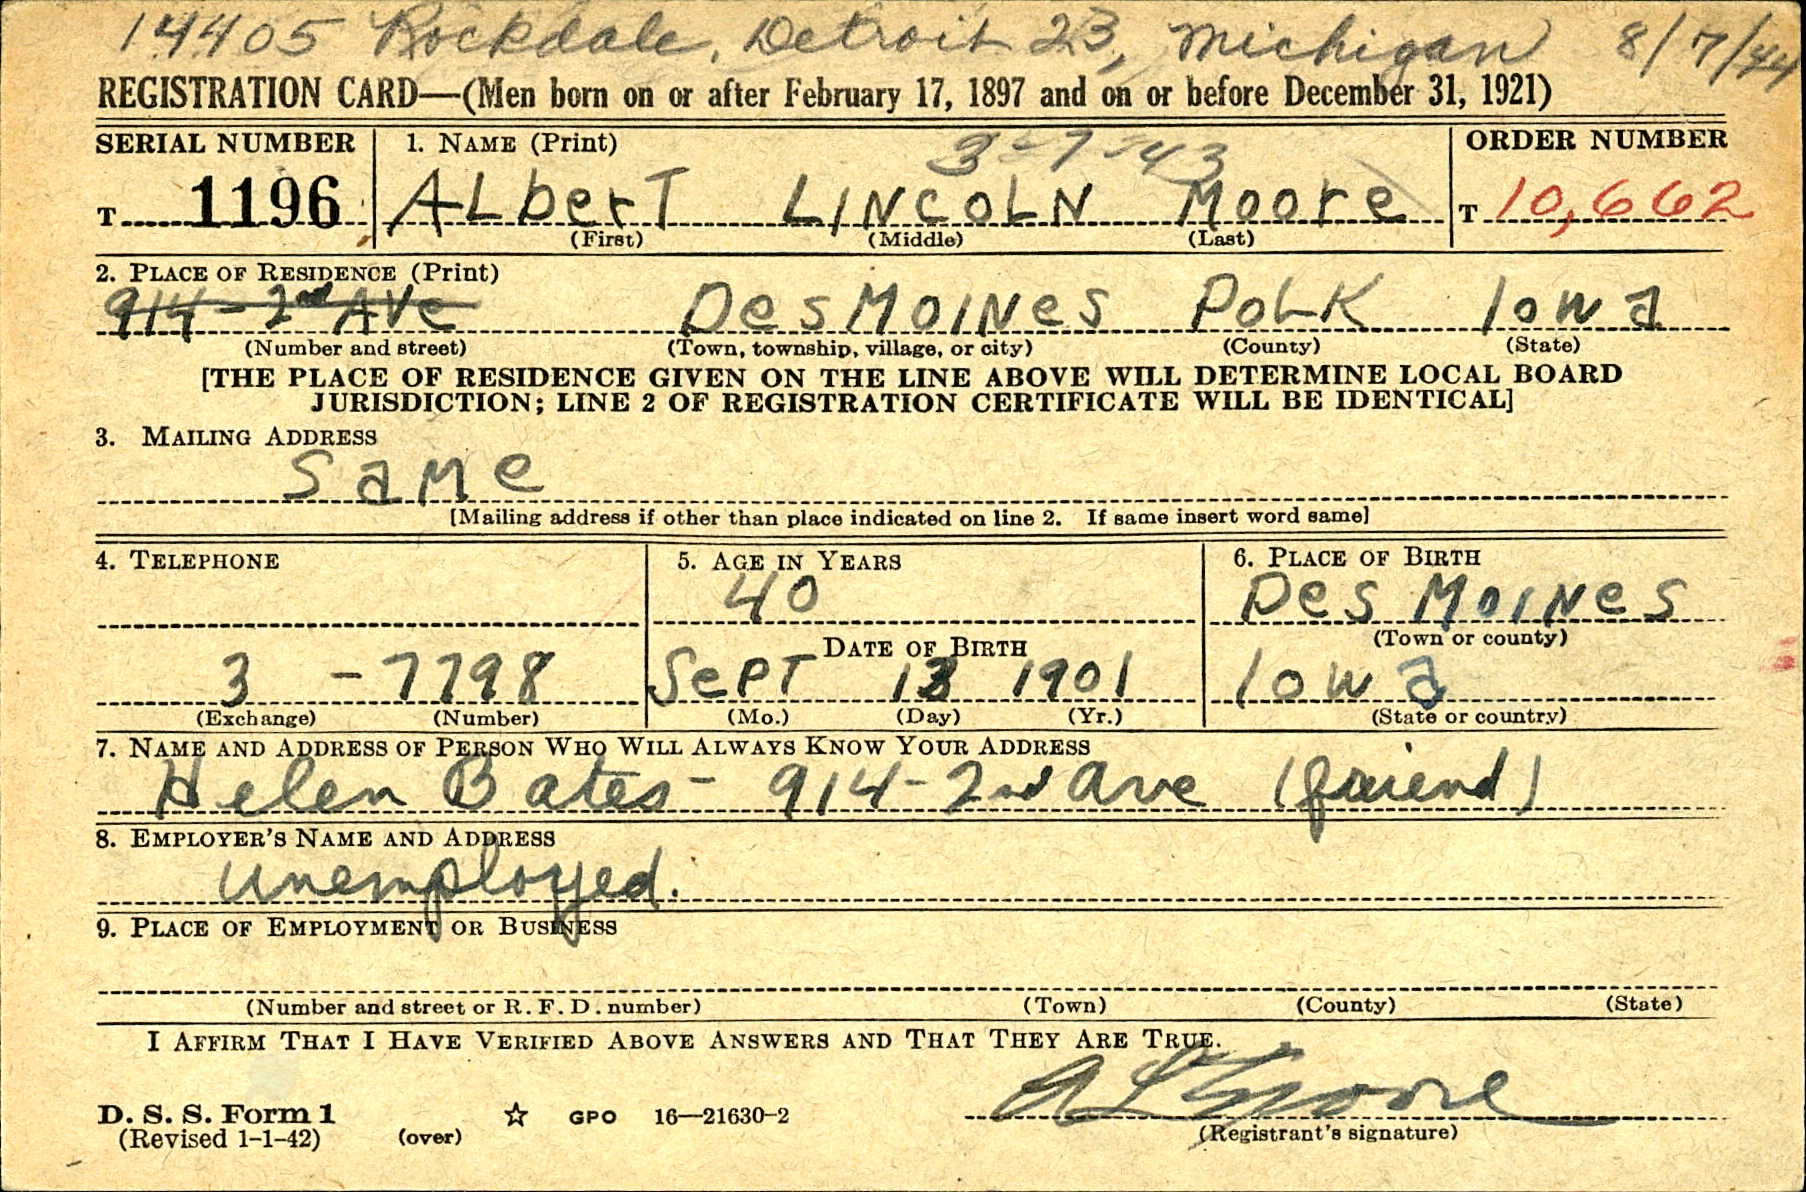 14405 Rockdale, Detroit 23, Michigan 8/7/44
REGISTRATION CARD—(Men born on or after February 17, 1897 and on or before December 31, 1921)
SERIAL NUMBER
1. NAME (Print)
3-7-43
ORDER NUMBER
T 1196
ALberT LINCOLN Moore
T 10,662
(First) (Middle) (Last)
2. PLACE OF RESIDENCE (Print)
914 - 2nd AVe Des MOINes POLK Iowa
(Number and street) (Town, township, village, or city) (County) (State)
[THE PLACE OF RESIDENCE GIVEN ON THE LINE ABOVE WILL DETERMINE LOCAL BOARD
JURISDICTION; LINE 2 OF REGISTRATION CERTIFICATE WILL BE IDENTICAL]
3. MAILING ADDRESS
Same
[Mailing address if other than place indicated on line 2. If same insert word same]
4. TELEPHONE
5. AGE IN YEARS
6. PLACE OF BIRTH
40
Des MOINes
(Town or county)
DATE OF BIRTH
3 - 7798
SePT 13 1901
Iowa
(Exchange) (Number)
(Mo.) (Day) (Yr.)
(State or country)
7. NAME AND ADDRESS OF PERSON WHO WILL ALWAYS KNOW YOUR ADDRESS
Helen Bates - 914 - 2nd Ave (friend)
8. EMPLOYER'S NAME AND ADDRESS
unemployed.
9. PLACE OF EMPLOYMENT OR BUSINESS
(Number and street or R. F. D. number) (Town) (County) (State)
I AFFIRM THAT I HAVE VERIFIED ABOVE ANSWERS AND THAT THEY ARE TRUE.
A L Moore
D. S. S. Form 1
(Revised 1-1-42) (over)
☆ GPO 16—21630-2
(Registrant's signature)